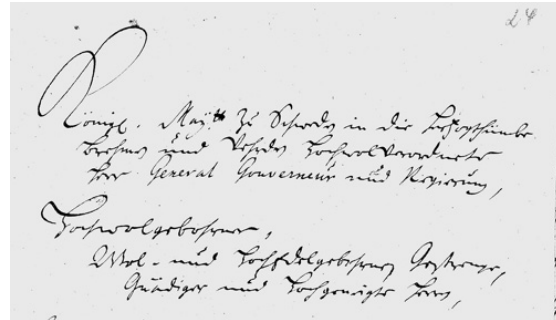 24
Königl. Maytt zu Schweden in die Hertzogthümbe
Brehmen und Vehrden Hochwolverordnete
Herr General Gouverneur und Regierung,
Hochwolgebohrner,
Wol- und HochEdelgebohrne, Gestrenge,
Gnädiger und Hochgeneigte Herren,